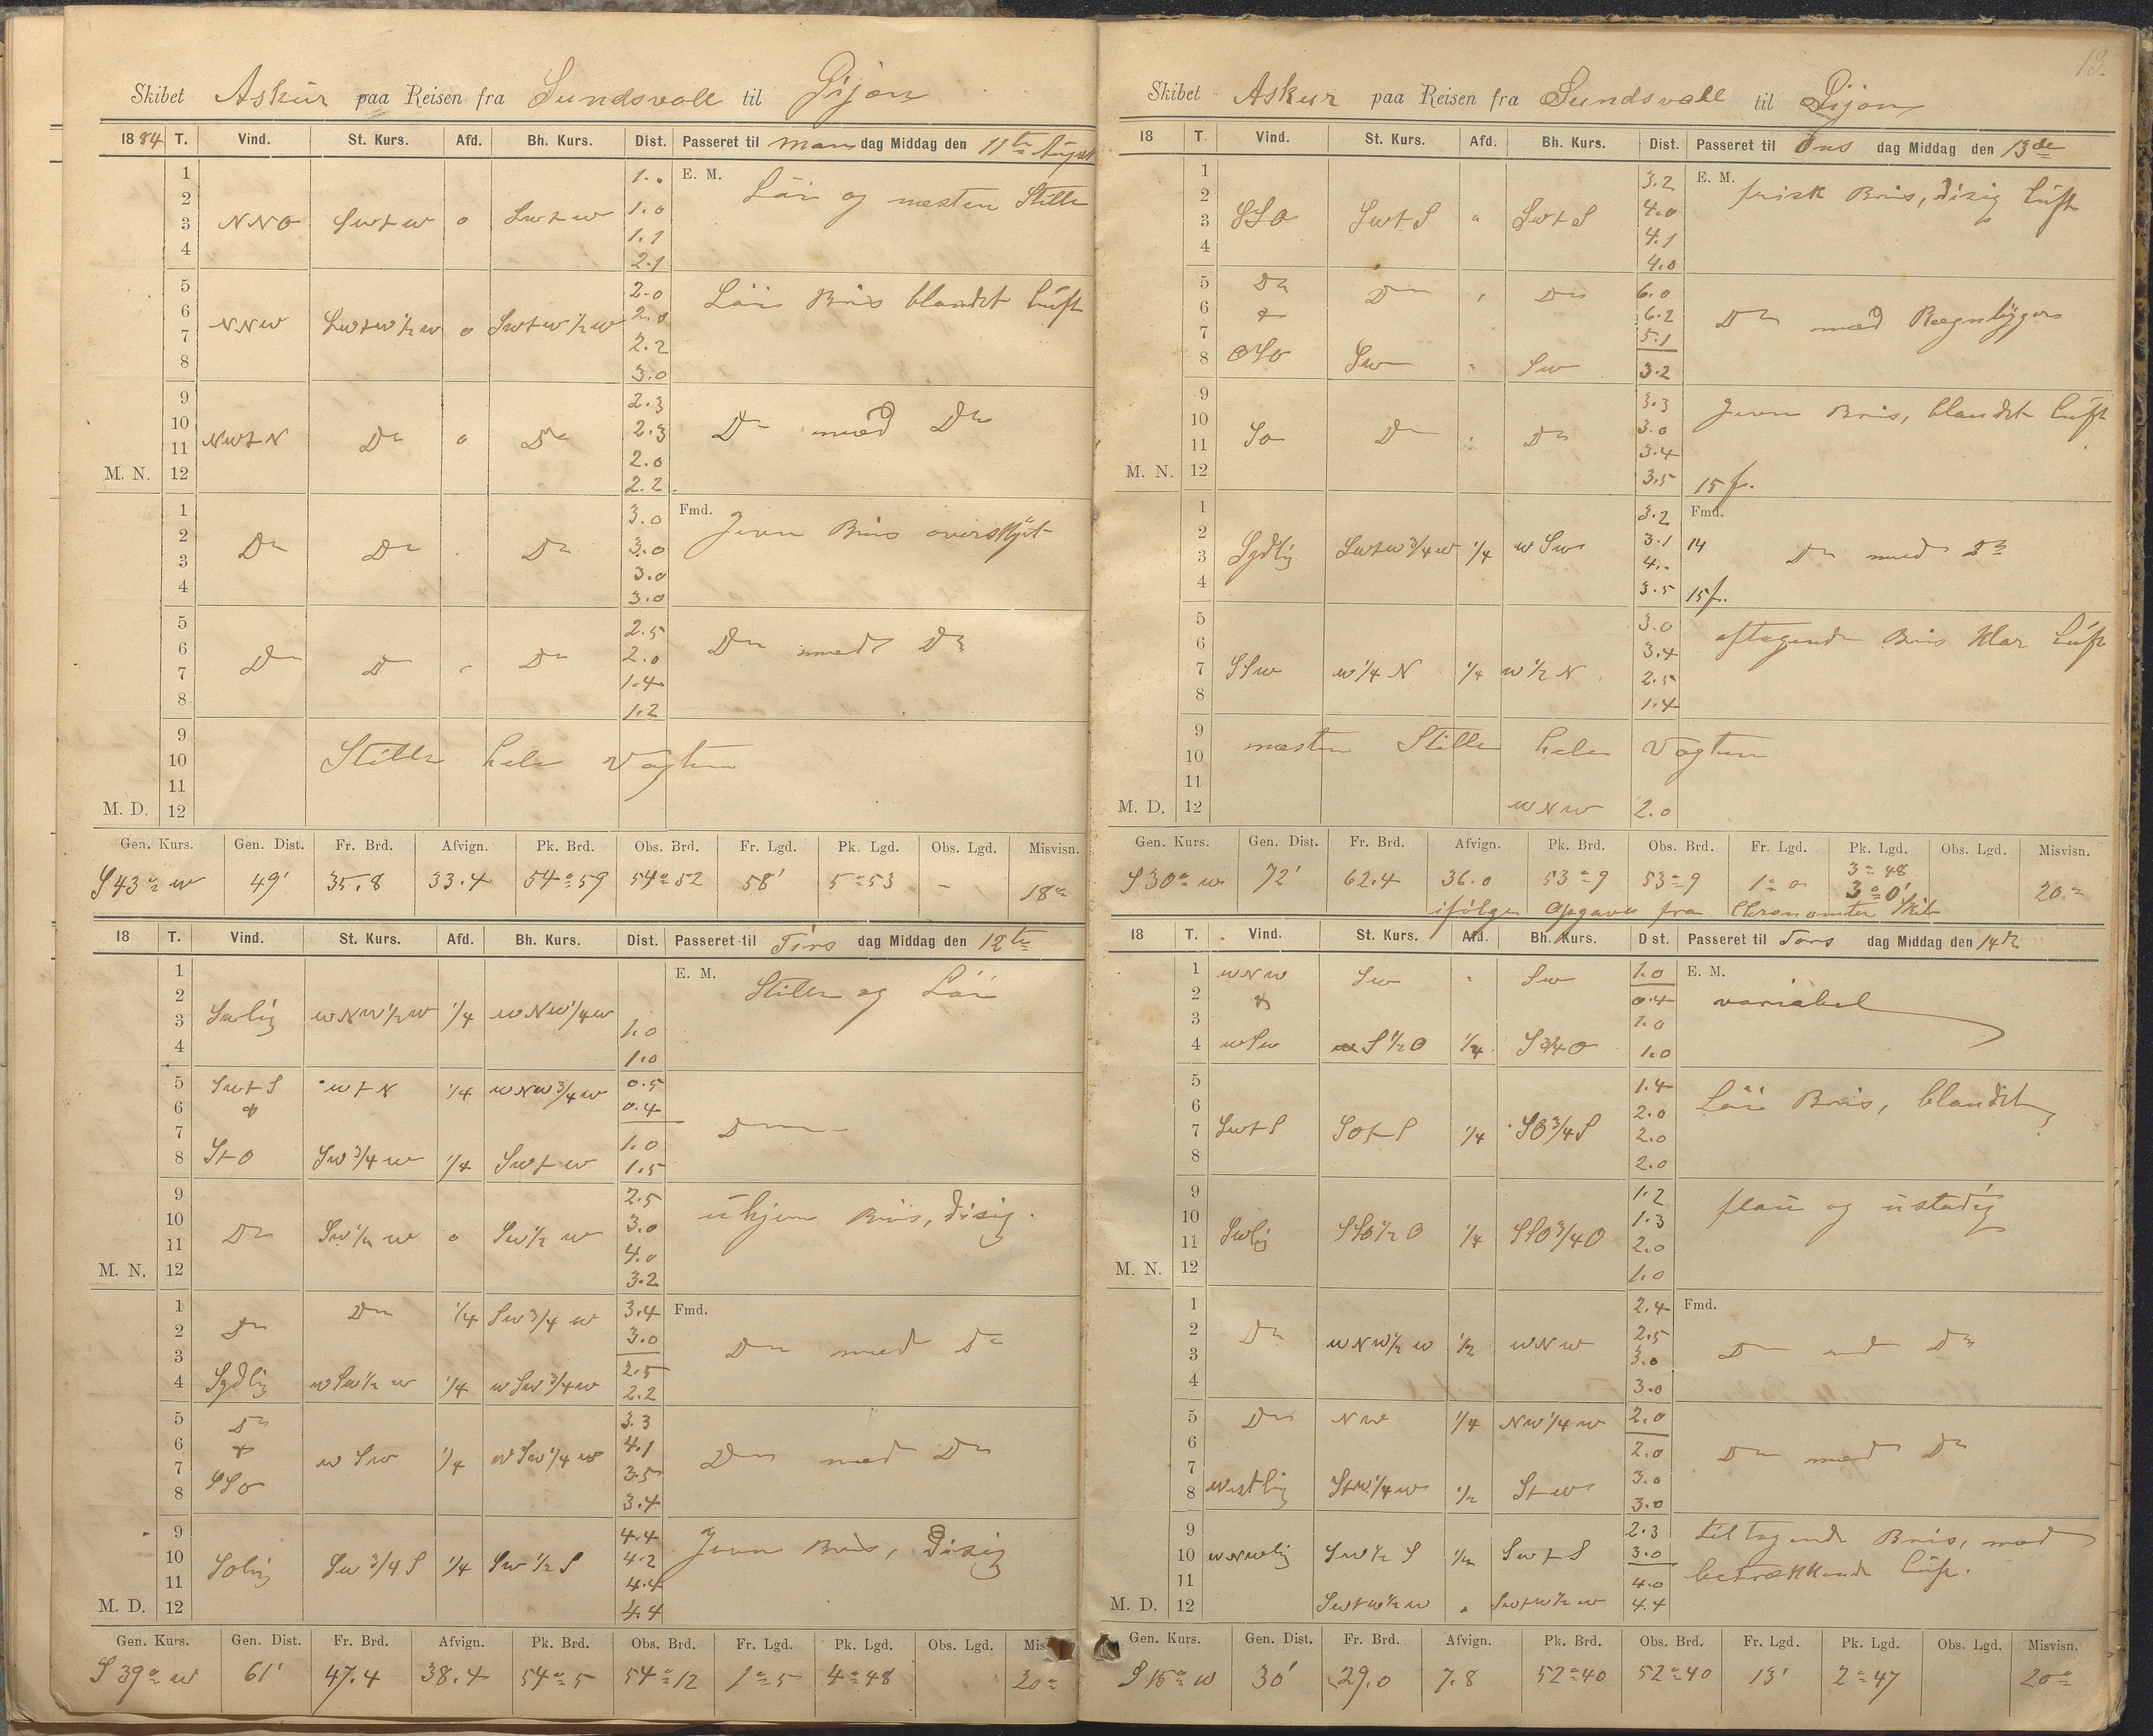 Skibet Askur paa Reisen fra Sundsvall til Gijon
1884 T. Vind. St. Kurs. Afd. Bh. Kurs. Dist. Passeret til Man dag Middag den 11te August
E. M.
1 1..
2 1.0 Löi og næsten Stille
3 NNO Swtw o Swtw 1.1
4 2.1
5 2.0 Löi Bris blandet Luft
6 2.0
7 NNW Swtw 1/2 w o Swtw 1/2 w 2.2
8 3.0
9 2.3
10 2.3 Do med Do
11 NWtN Do o Do 2.0
M. N. 12 2.2
Fmd.
1 3.0 Jevn Bris overskyet
2 Do Do Do 3.0
3 3.0
4 3.0
5 2.5 Do med Do
6 2.0
7 Do Do Do 1.4
8 1.2
9
10 Stille hele Vagten
11
M. D. 12
Gen. Kurs. Gen. Dist. Fr. Brd. Afvign. Pk. Brd. Obs. Brd. Fr. Lgd. Pk. Lgd. Obs. Lgd. Misvisn.
S 43° w 49' 35.8 33.4 54°59 54°52 58' 5°53 - 18°
18 T. Vind. St. Kurs. Afd. Bh. Kurs. Dist. Passeret til Tirs dag Middag den 12te
E. M.
1 Stille og Löi
2
3 Swlig wNw 1/2 w 1/4 wNw 1/4 w 1.0
4 1.0
5 Swt S wtN 1/4 wNw 3/4 w 0.5
6 & 0.4
7 1.0 Do
8 StO Sw 3/4 w 1/4 Swtw 1.5
9 2.5 ujevn Bris, disig.
10 3.0
11 Do Sw 1/2 w o Sw 1/2 w 4.0
M. N. 12 3.2
Fmd.
1 Do 1/4 Sw 3/4 w 3.4
2 Do 3.0 Do med Do
3 2.5
4 Sydlig wSw 1/2 w 1/4 wSw 3/4 w 2.2
5 Do 3.3
6 & w Sw 1/4 wSw 1/4 w 4.1 Do med Do
7 3.5
8 SSO 3.4
9 4.4 Jevn Bris, Disig
10 Solig Sw 3/4 S 1/4 Sw 1/2 S 4.2
11 4.4
M. D. 12 4.4
Gen. Kurs. Gen. Dist. Fr. Brd. Afvign. Pk. Brd. Obs. Brd. Fr. Lgd. Pk. Lgd. Obs. Lgd. Mis
S 39° w 61' 47.4 38.4 54°5 54°12 1°5 4°48 20°
13.
Skibet Askur paa Reisen fra Sundsvall til Gijon
18 T. Vind. St. Kurs. Afd. Bh. Kurs. Dist. Passeret til Ons dag Middag den 13de
E. M.
1 3.2 frisk Bris, disig Luft
2 4.0
3 SSO Swt S Swt S 4.1
4 4.0
5 Do Do Do 6.0
6 & 6.2 Do med Regnbyger
7 5.1
8 OSO Sw Sw 3.2
9 3.3 Jevn Bris, blandet Luft
10 3.0
11 So Do Do 3.4
M. N. 12 3.5 15 f.
Fmd.
1 3.2
2 3.1 14 Do med Do
3 Sydlig Swtw 3/4 w 1/4 wSw 4..
4 3.5 15 f.
5 3.0 aftagende Bris Klar Luft
6 3.4
7 SSw w 1/4 N 1/4 w 1/2 N 2.5
8 1.4
9 næsten Stille hele Vagten
10
11
M. D. 12 wNw 2.0
Gen. Kurs. Gen. Dist. Fr. Brd. Afvign. Pk. Brd. Obs. Brd. Fr. Lgd. Pk. Lgd. Obs. Lgd. Misvisn.
3°48
S 30° w 72' 62.4 36.0 53°9 53°9 1°0 3°0' 20°
ifölge Opgave fra Chronometer Skib
18 T. Vind. St. Kurs. Afd. Bh. Kurs. Dist. Passeret til Tors dag Middag den 14de
E. M.
1 wNw Sw Sw 1.0
2 & 0.4 variabel
3 1.0
4 wSw S 1/2 O 1/4 S 3/4 O 1.0
5 1.4 Löi Bris, blandet
6 2.0
7 Swt S SOt S 1/4 SO 3/4 S 2.0
8 2.0
9 1.2 flau og ustadig
10 1.3
11 Swlig SSO 1/2 O 1/4 SSO 3/4 O 2.0
M. N. 12 1.0
Fmd.
1 2.4
2 Do wNw 1/2 w 1/2 wNw 2.5
3 3.0 Do med Do
4 3.0
5 Do NW 1/4 NW 1/4 w 2.0
6 2.0 Do med Do
7 3.0
8 westlig Stw 1/4 w 1/2 Stw 3.0
9 2.3 tiltagende Bris, med
10 wNwlig Sw 1/2 S 1/2 Swt S 3.0
11 4.0 betrækkende Luft.
M. D. 12 Swtw 1/2 w Swtw 1/2 w 4.4
Gen. Kurs. Gen. Dist. Fr. Brd. Afvign. Pk. Brd. Obs. Brd. Fr. Lgd. Pk. Lgd. Obs. Lgd. Misvisn.
S 15° w 30' 29.0 7.8 52°40 52°40 13' 2°47 20°